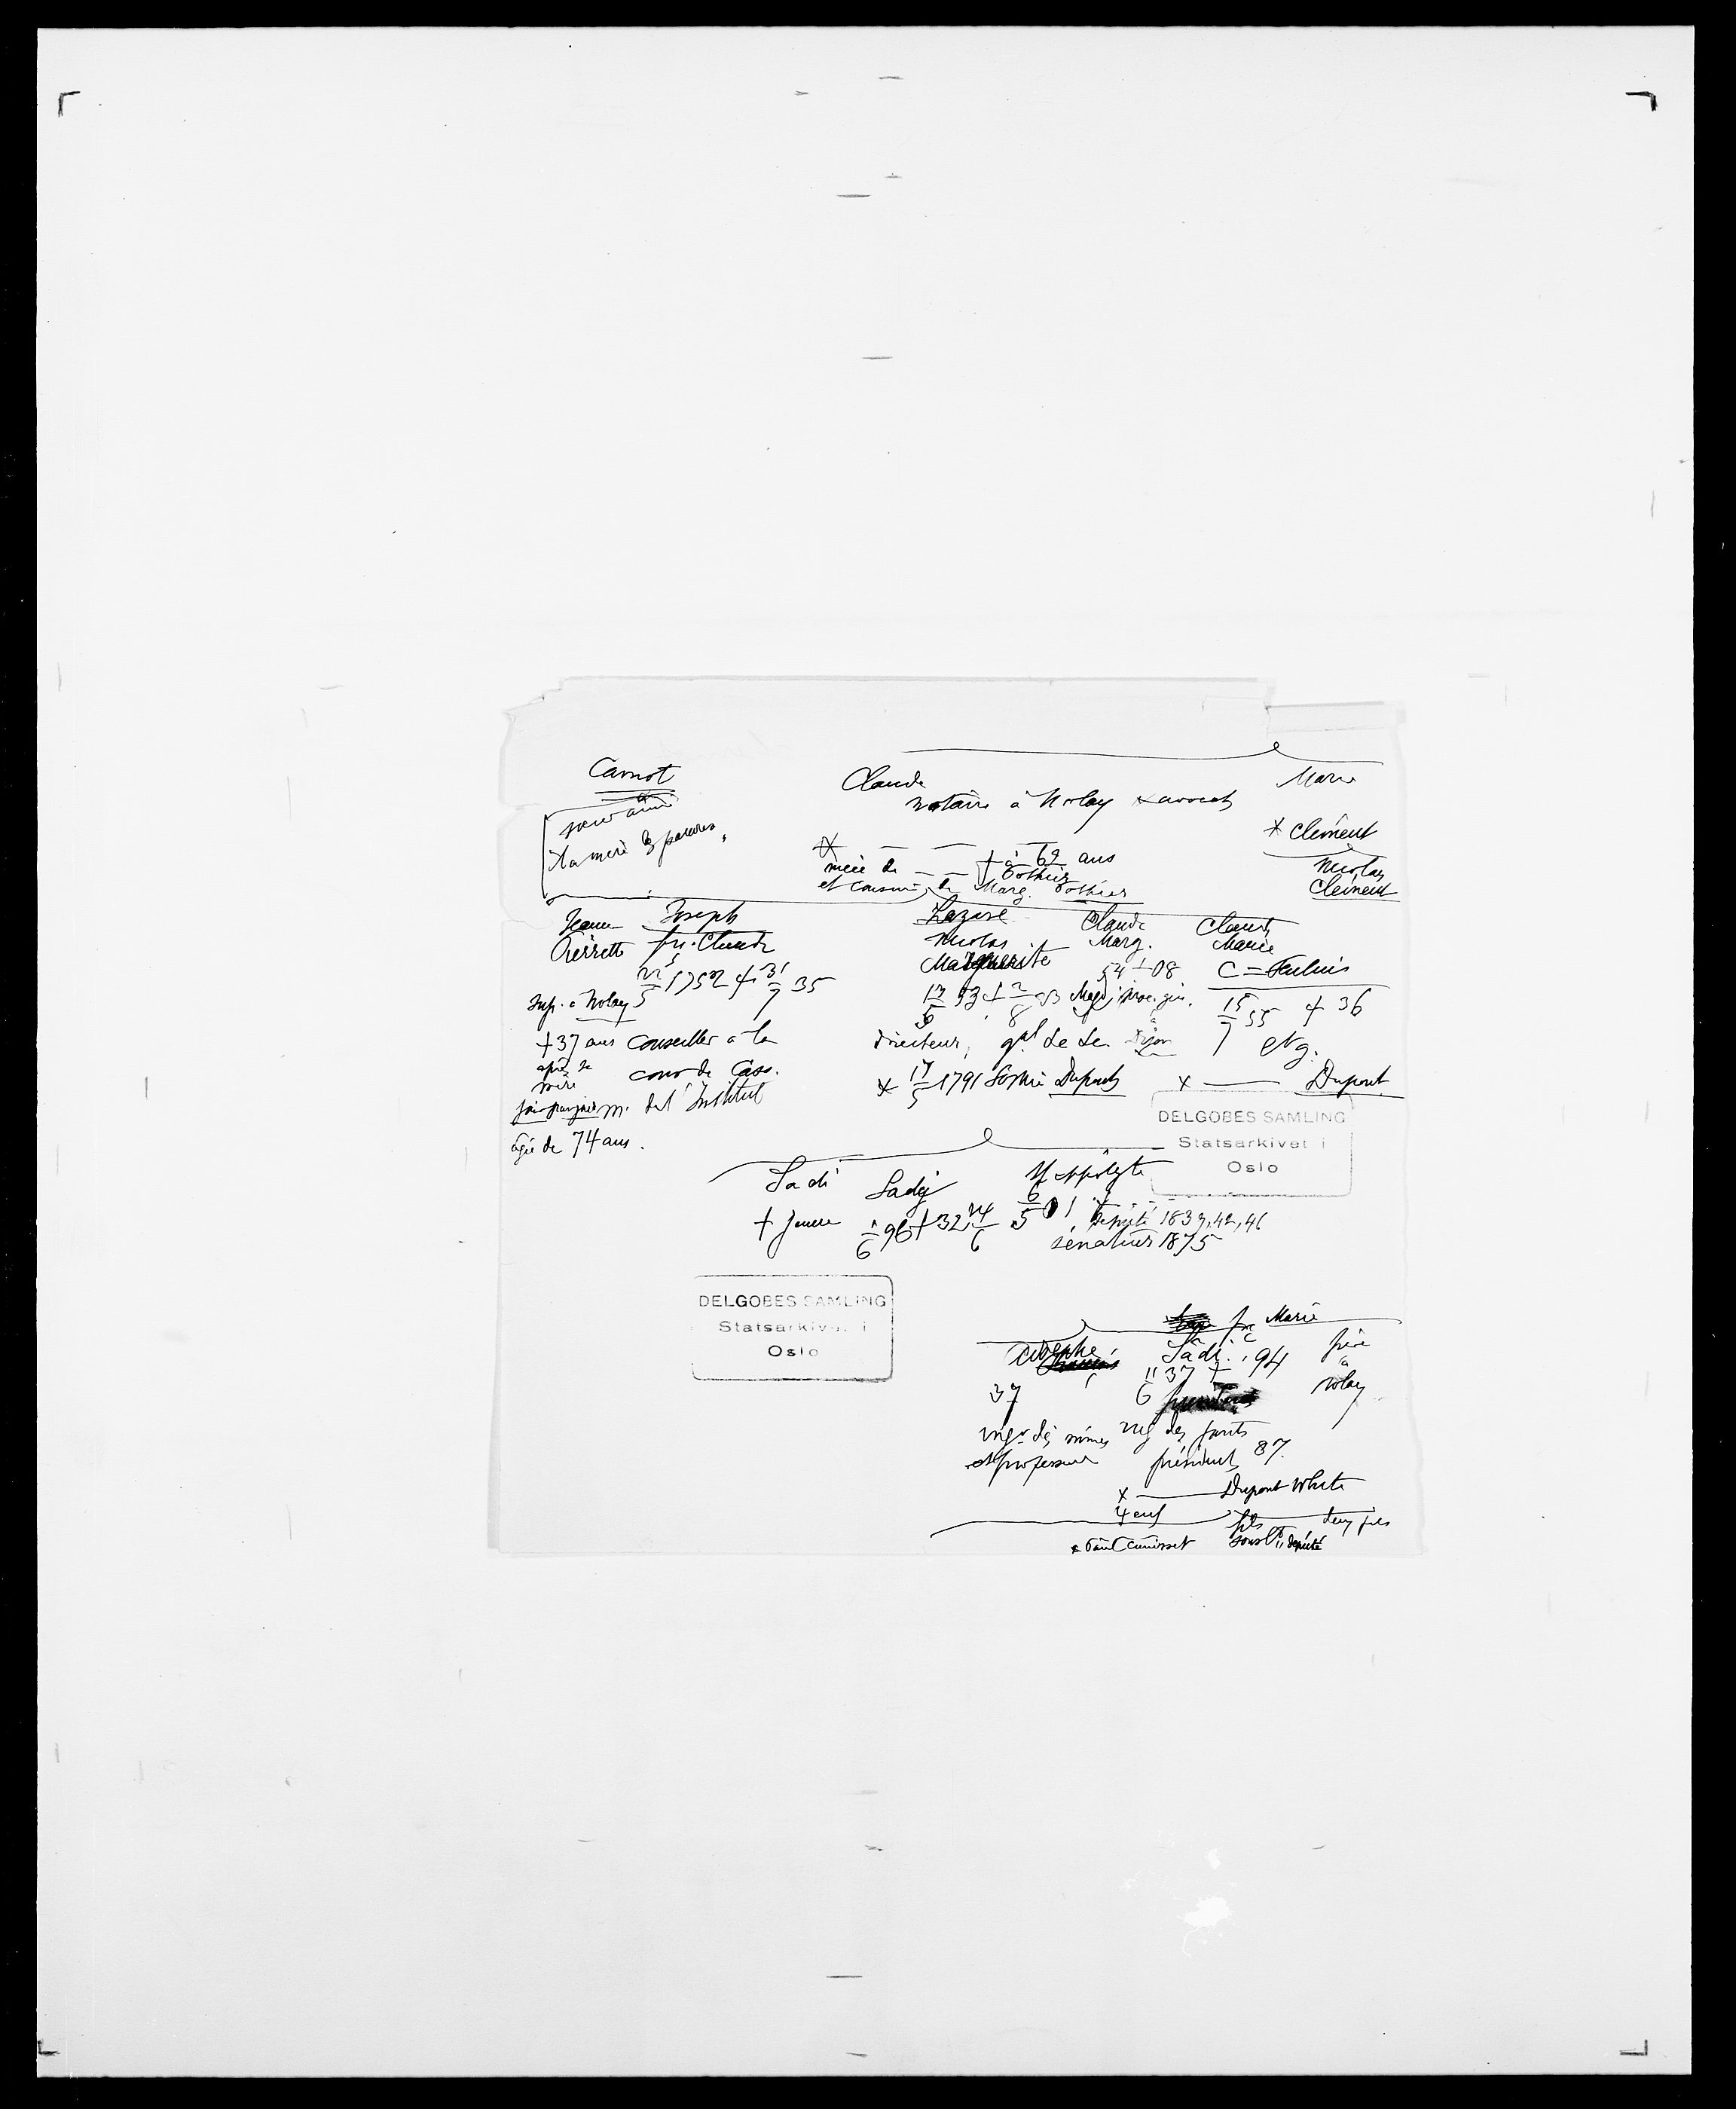 Carnot
Claude
notaire à Nolay x avocat
Marie
soeur ainée
x la mère des pauvres,
x — — † à 62 ans
nièce de — — Pothier
et cousine de Marg. Pothier
x Clément
Nicolas
Clément
Jeanne
Pierrette
Sup. à Nolay
† 37 ans
après le
frère
âgée de 74 ans.
Joseph
fr. Claude
22/5 1752 † 31/7 35
conseiller à la
cour de Cass.
m. de l'Institut
Lazare
Nicolas
Marguerite
13/5 53 † 2/8 23
Claude
Marg.
54 † 08
Claude
Marie
C = Feulins
15/7 55 † 36
directeur, gal de
Dijon
x 17/5 1791 Sophie Dupont
x — Dupont
DELGOBES SAMLING
Statsarkivet i
Oslo
Sadi
† jeune
Sadi
1/6 96 † 32 24/6
Hippolyte
6/5 01
député 1839, 42, 46
sénateur 1875
DELGOBES SAMLING
Statsarkivet i
Oslo
Adolphe
37
ingr des mines
et professeur
fr Marie
Sadi
11/6 37 † 94
ing des ponts
président 87.
frère
à
Nolay
x — Dupont White
4 enf
x Paul Cunisset
fils
sous Lt, député
deux fils